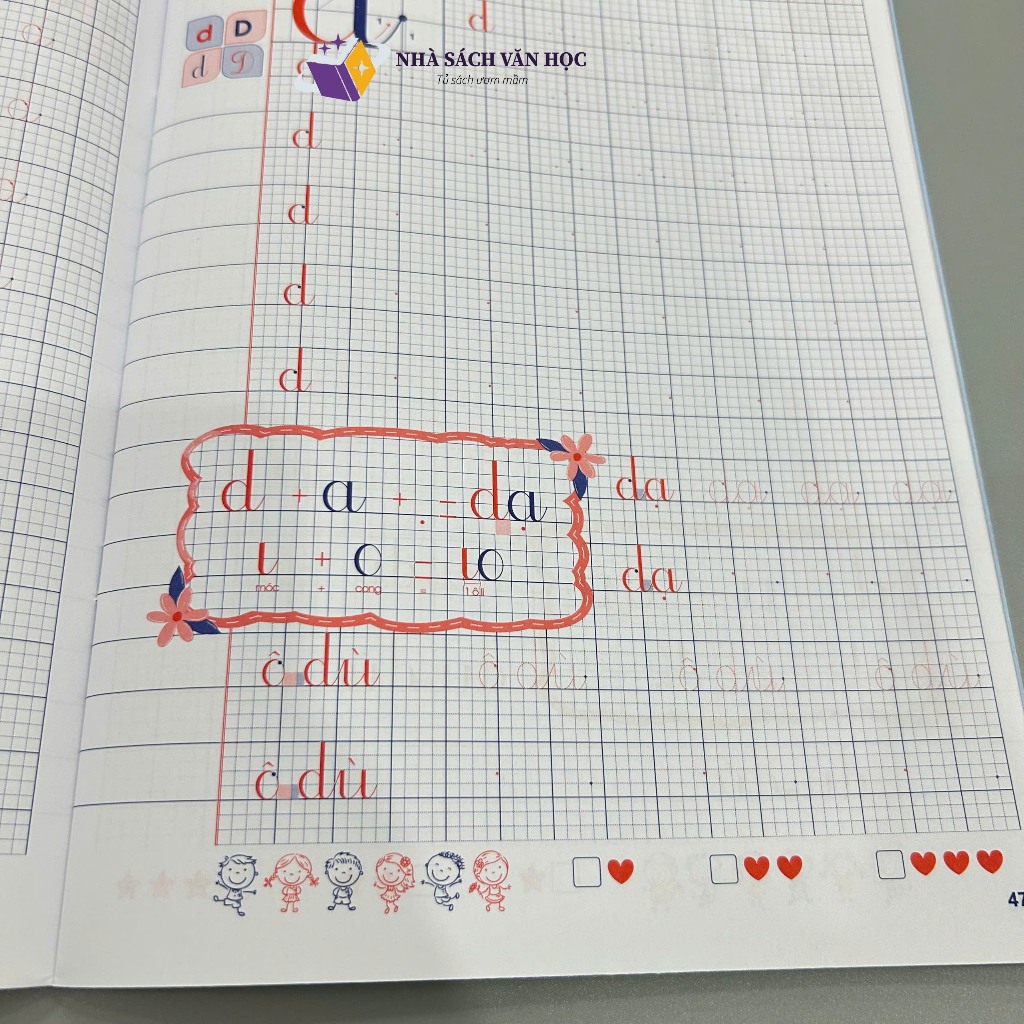 d D d
d D
NHÀ SÁCH VĂN HỌC
Tủ sách ươm mầm
d
d
d
d
d + a + . = dạ dạ dạ dạ dạ
ɩ + o = ɩo dạ
móc + cong =
ô dù ô dù ô dù ô dù
ô dù
47